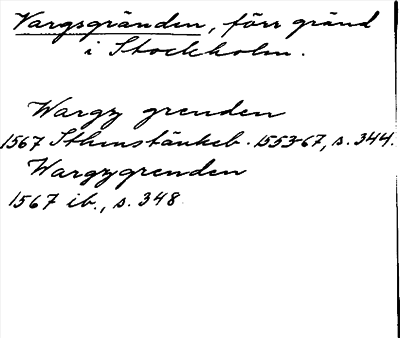 Vargsgränden, förr gränd
i Stockholm.
Wargz grenden
1567 Sthmstänkeb. 1553-67, s. 344.
Wargzgrenden
1567 ib., s. 348